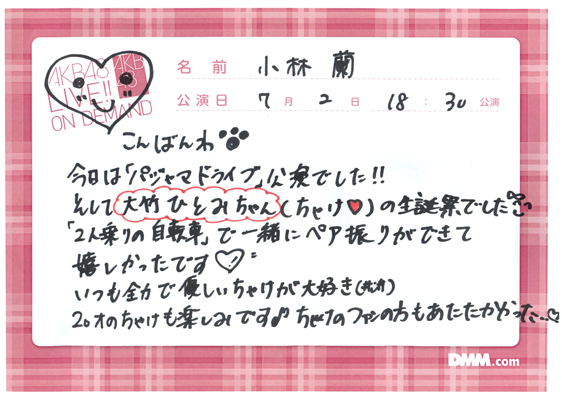 AKB48
LIVE!!
ON DEMAND
名前 小林 蘭
公演日 7月2日 18:30 公演
こんばんわ
今日は「パジャマドライブ」公演でした!!
そして大竹ひとみちゃん(ちゃけ♥)の生誕祭でした
「2人乗りの自転車」で一緒にペア振りができて
嬉しかったです♡
いつも全力で優しいちゃけが大好き
20才のちゃけも楽しみです♪ちゃけのファンの方もあたたかかった…♡
DMM.com